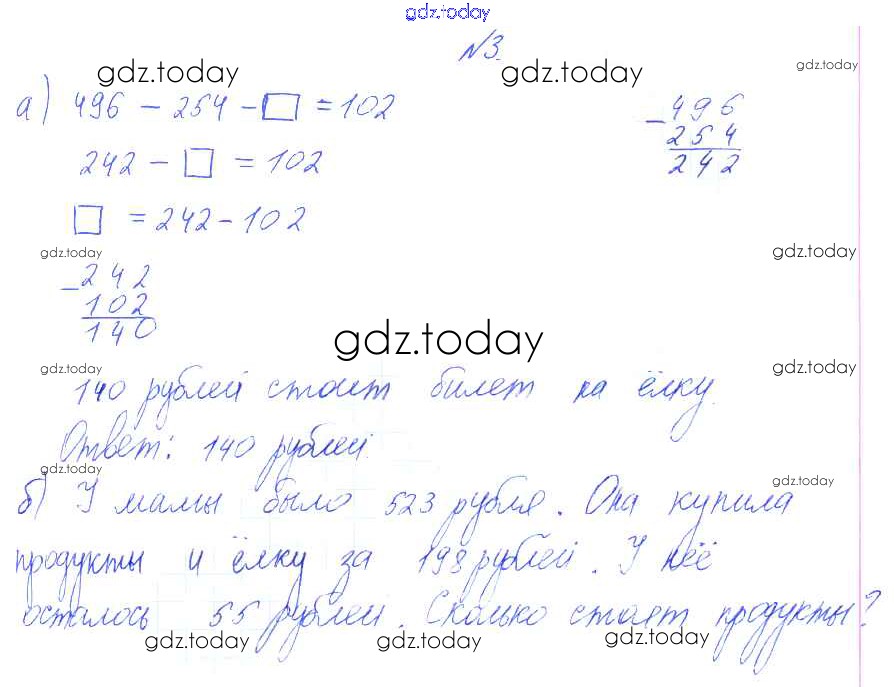 gdz.today
№3.
gdz.today gdz.today gdz.today
а) 496 − 254 − □ = 102
− 496
254
242
242 − □ = 102
□ = 242 − 102
gdz.today gdz.today
− 242
102
140
gdz.today
gdz.today gdz.today
140 рублей стоит билет на ёлку.
Ответ: 140 рублей.
gdz.today gdz.today
б) У мамы было 523 рубля. Она купила
продукты и ёлку за 198 рублей. У неё
осталось 55 рублей. Сколько стоят продукты?
gdz.today gdz.today gdz.today